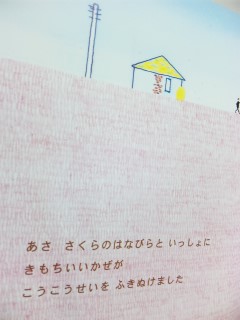 あさ　さくらのはなびらと いっしょに
きもちいいかぜが
こうこうせいを ふきぬけました